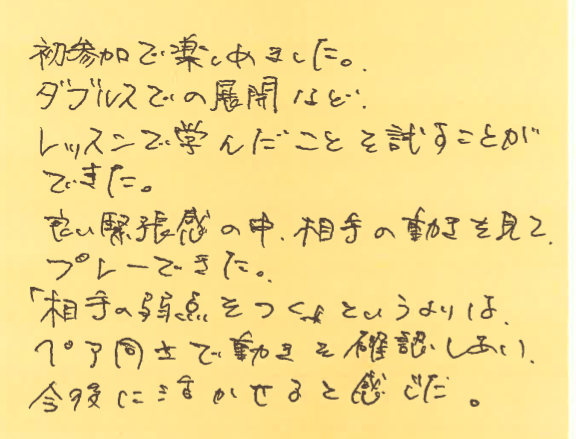 初参加で楽しめました。
ダブルスでの展開など、
レッスンで学んだことを試すことが
できた。
良い緊張感の中、相手の動きを見て、
プレーできた。
「相手の弱点をつく」というよりは、
ペア同士で動きを確認しあい、
今後に活かせると感じた。